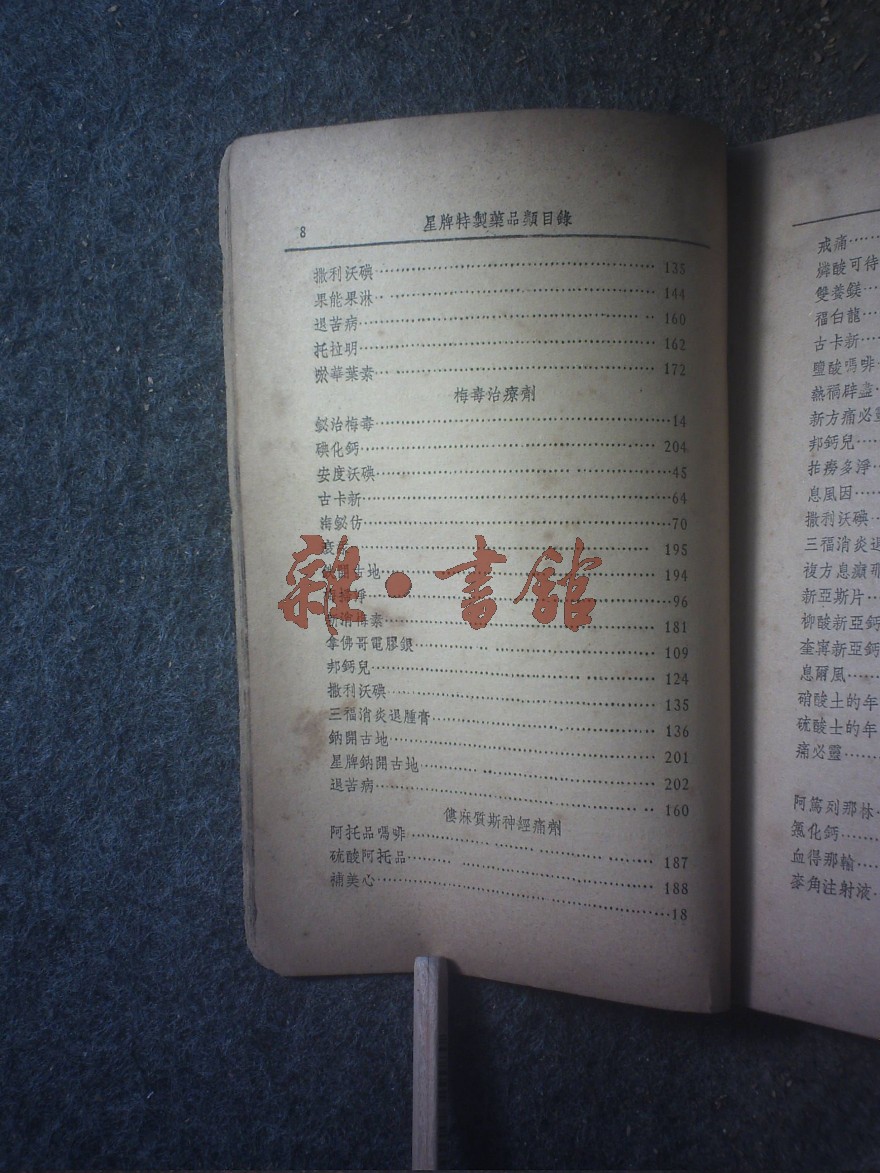 8 星牌特製藥品類目錄
撒利沃碘 135
果能果淋 144
退苦病 160
托拉明 162
葉素 172
梅毒治療劑
鉍治梅毒 14
碘化鈣 204
安度沃碘 45
古卡新 64
海鉍仿 70
195
開古地 194
96
梅素 181
拿佛哥電膠銀 109
邦鈣兒 124
撒利沃碘 135
三福消炎退腫膏 136
鈉開古地 201
星牌鈉開古地 202
退苦病 160
僂麻質斯神經痛劑
阿托品嗎啡 187
硫酸阿托品 188
補美心 18
雜·書館
戒痛
燐酸可待
雙養鎂
福白龍
古卡新
鹽酸嗎啡
新方痛必靈
邦鈣兒
息風因
撒利沃碘
三福消炎退
複方息
新亞斯片
柳酸新亞鈣
奎寧新亞鈣
息爾風
硝酸士的年
硫酸士的年
痛必靈
阿篤列那林
氯化鈣
血得那輸
麥角注射液